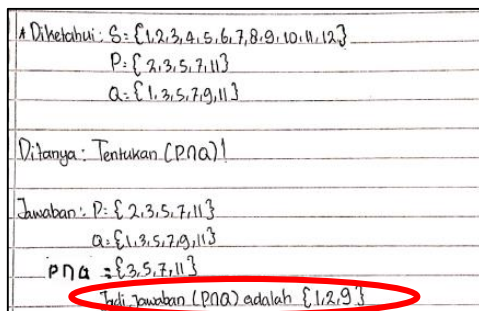 * Diketahui: S = {1,2,3,4,5,6,7,8,9,10,11,12}
P = {2,3,5,7,11}
Q = {1,3,5,7,9,11}
Ditanya: Tentukan (P∩Q)!
Jawaban: P = {2,3,5,7,11}
Q = {1,3,5,7,9,11}
P∩Q = {3,5,7,11}
Jadi jawaban (P∩Q) adalah {1,2,9}